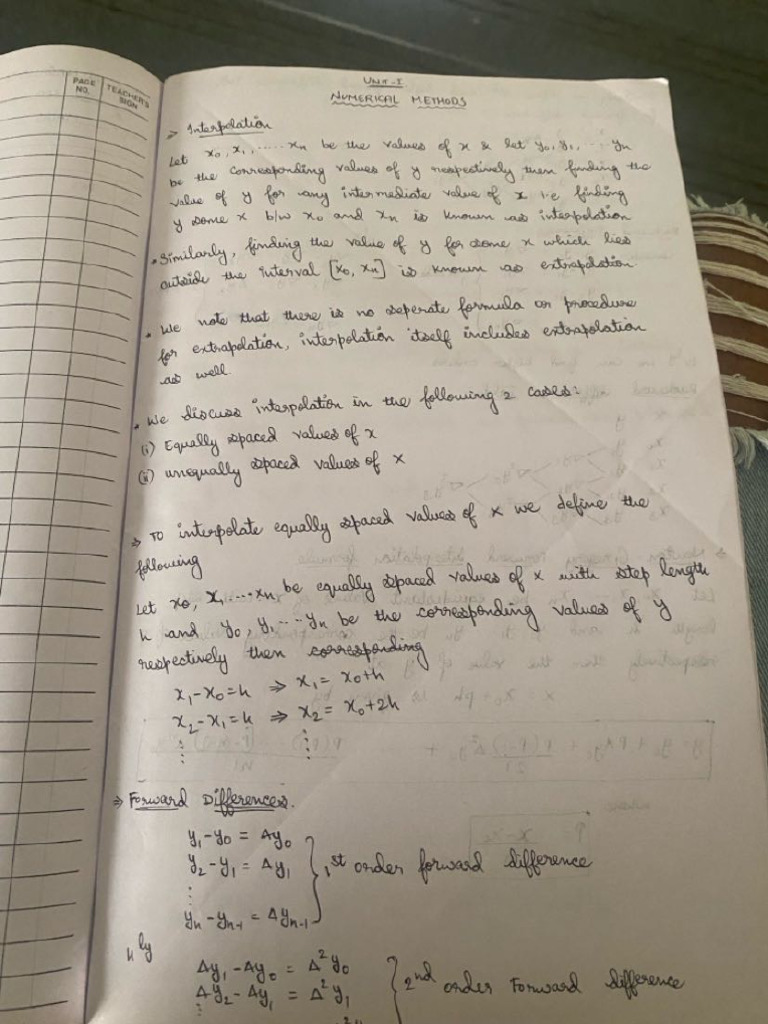 PAGE NO.
TEACHER'S SIGN
UNIT-I
NUMERICAL METHODS
> Interpolation
Let x₀, x₁, ...... xₙ be the values of x & let y₀, y₁, ... yₙ
be the corresponding values of y respectively then finding the
value of y for any intermediate value of x i.e finding
y some x b/w x₀ and xₙ is known as interpolation
• Similarly, finding the value of y for some x which lies
outside the interval [x₀, xₙ] is known as extrapolation.
• We note that there is no seperate formula or procedure
for extrapolation, interpolation itself includes extrapolation
as well.
• We discuss interpolation in the following 2 cases:
(i) Equally spaced values of x
(ii) unequally spaced values of x
⇒ To interpolate equally spaced values of x we define the
following
Let x₀, x₁ .... xₙ, be equally spaced values of x with step length
h and y₀, y₁ ... yₙ be the corresponding values of y
respectively then corresponding
x₁-x₀=h ⇒ x₁ = x₀+h
x₂-x₁=h ⇒ x₂ = x₀+2h
⋮ ⋮
⇒ Forward Differences.
y₁-y₀ = Δy₀
y₂-y₁ = Δy₁ } 1st order forward difference
⋮
yₙ-yₙ₋₁ = Δyₙ₋₁
ly
Δy₁-Δy₀ = Δ²y₀
Δy₂-Δy₁ = Δ²y₁ } 2nd order Forward difference
⋮